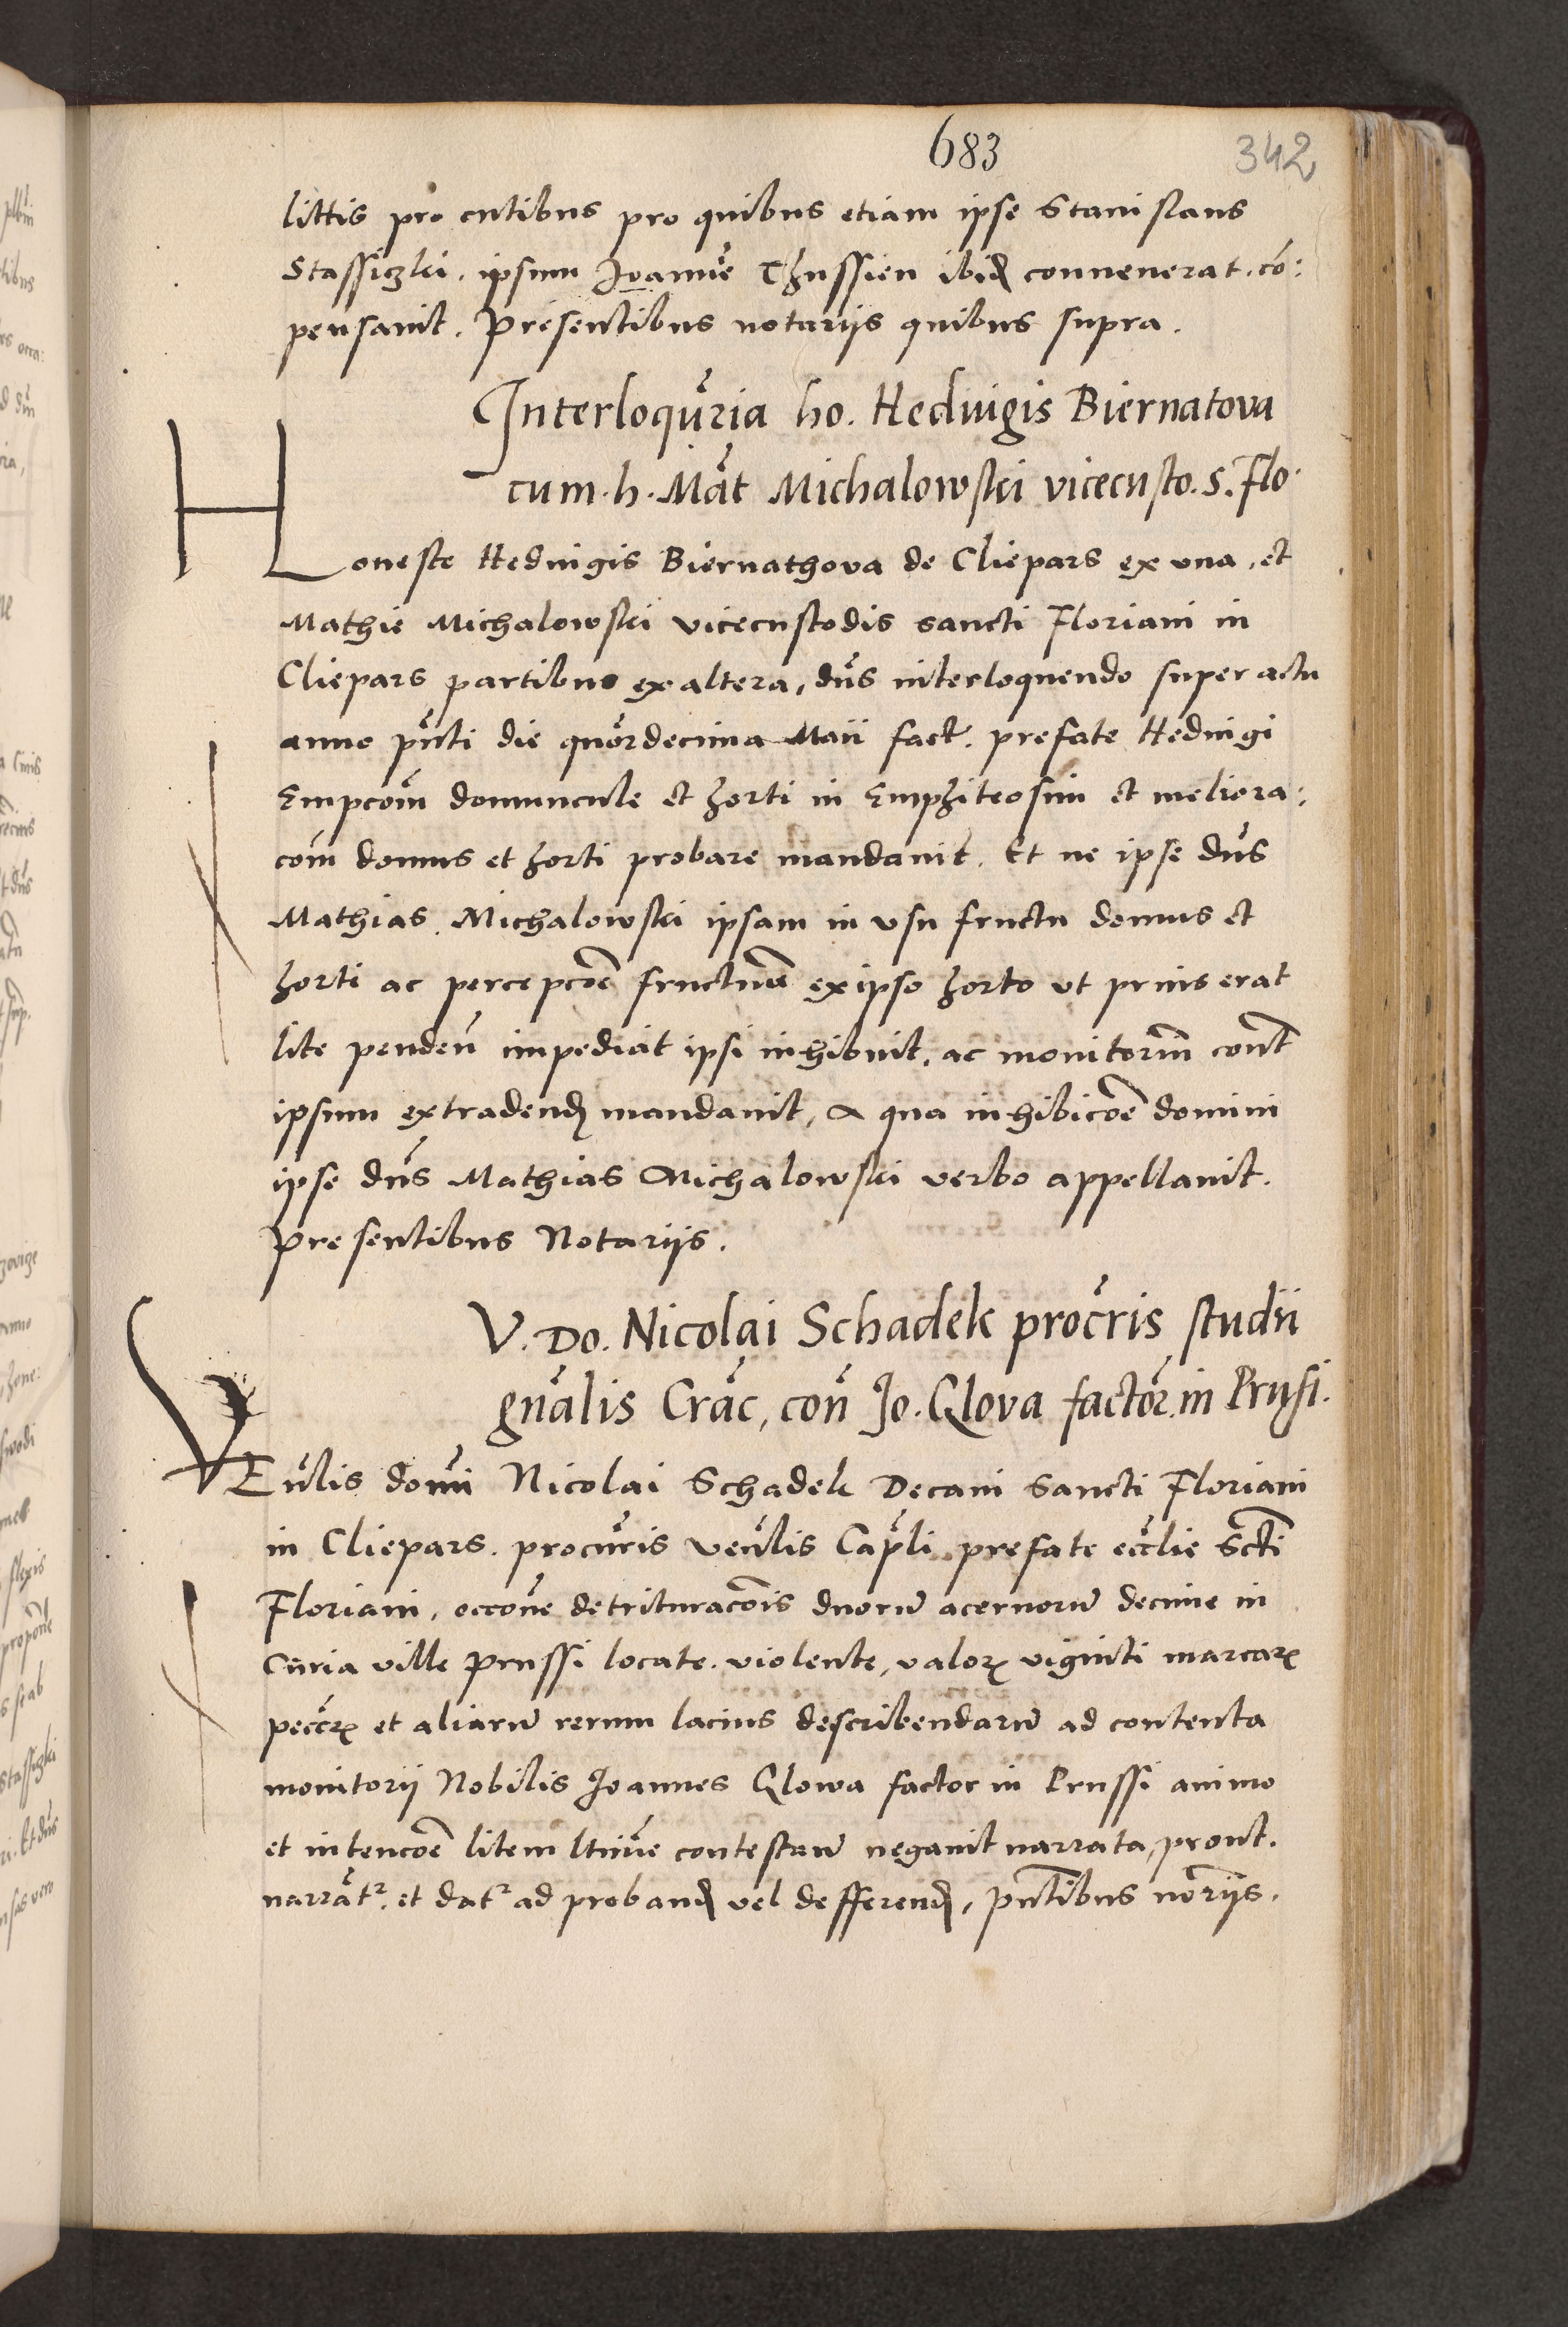 683
342
littis pro cutibus pro quibus etiam ipse Stanislaus
Stassiczki. ipsum Joannē Thussien ibiđ convenerat. cō:
pensavit. Presentibus notariis quibus supra.
Interloqūria ho. Hedvigis Biernatova
cum. h. Māt Michalowski vicecusto. s. Flo.
Honeste Hedvigis Biernathova de Cliepars ex una, et
Mathie Michalowski vicecustodis sancti Floriani in
Cliepars partibus ex altera, dn̄s interloquendo super actu
anno pn̄ti die quōrdecima Maii fact. prefate Hedvigi
Empcōm domuncule et horti in Emphiteosim et meliora:
cōm domus et horti probare mandavit. Et ne ipse dn̄s
Mathias. Michalowski ipsam in usu fructu domus et
horti ac percepcōē fructuū ex ipso horto ut prius erat
lite penden̄ impediat ipsi inhibuit. ac monitoriū cont̄
ipsum extradenđ mandavit, A qua inhibicōē domini
ipse dn̄s Mathias Michalowski verbo appellavit.
Presentibus Notariis.
V. Do. Nicolai Schadek procr̄is studii
gn̄alis Crac̄, con̄ Jo. Glova factor̄. in Prusi.
VEn̄lis domi Nicolai Schadek Decani Sancti Floriani
in Cliepars. procur̄is ven̄lis Cap̄li prefate eccl̄ie Sct̄i
Floriani, occōne detrituracōis duorum acervorum decime in
Curia ville Prussi locate. violente, valorꝝ viginti marcarꝝ
pec̄c̄rꝝ et aliarum rerum lacius describendarum ad contenta
monitorii Nobilis Joannes Glowa factor in Prussi animo
et intencōē litem ltiīve contestan̄ negavit narrata, prout.
narrāt². et dat² ad probanđ vel defferenđ, pn̄tibus nor̄iis.